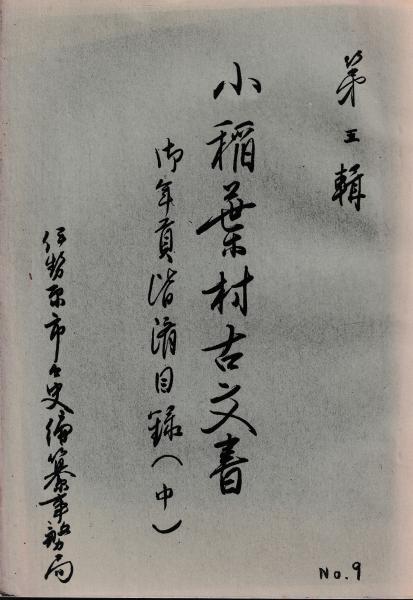 第五輯
小稲葉村古文書
御年貢皆済目録(中)
伊勢原市々史編纂事務局
No.9